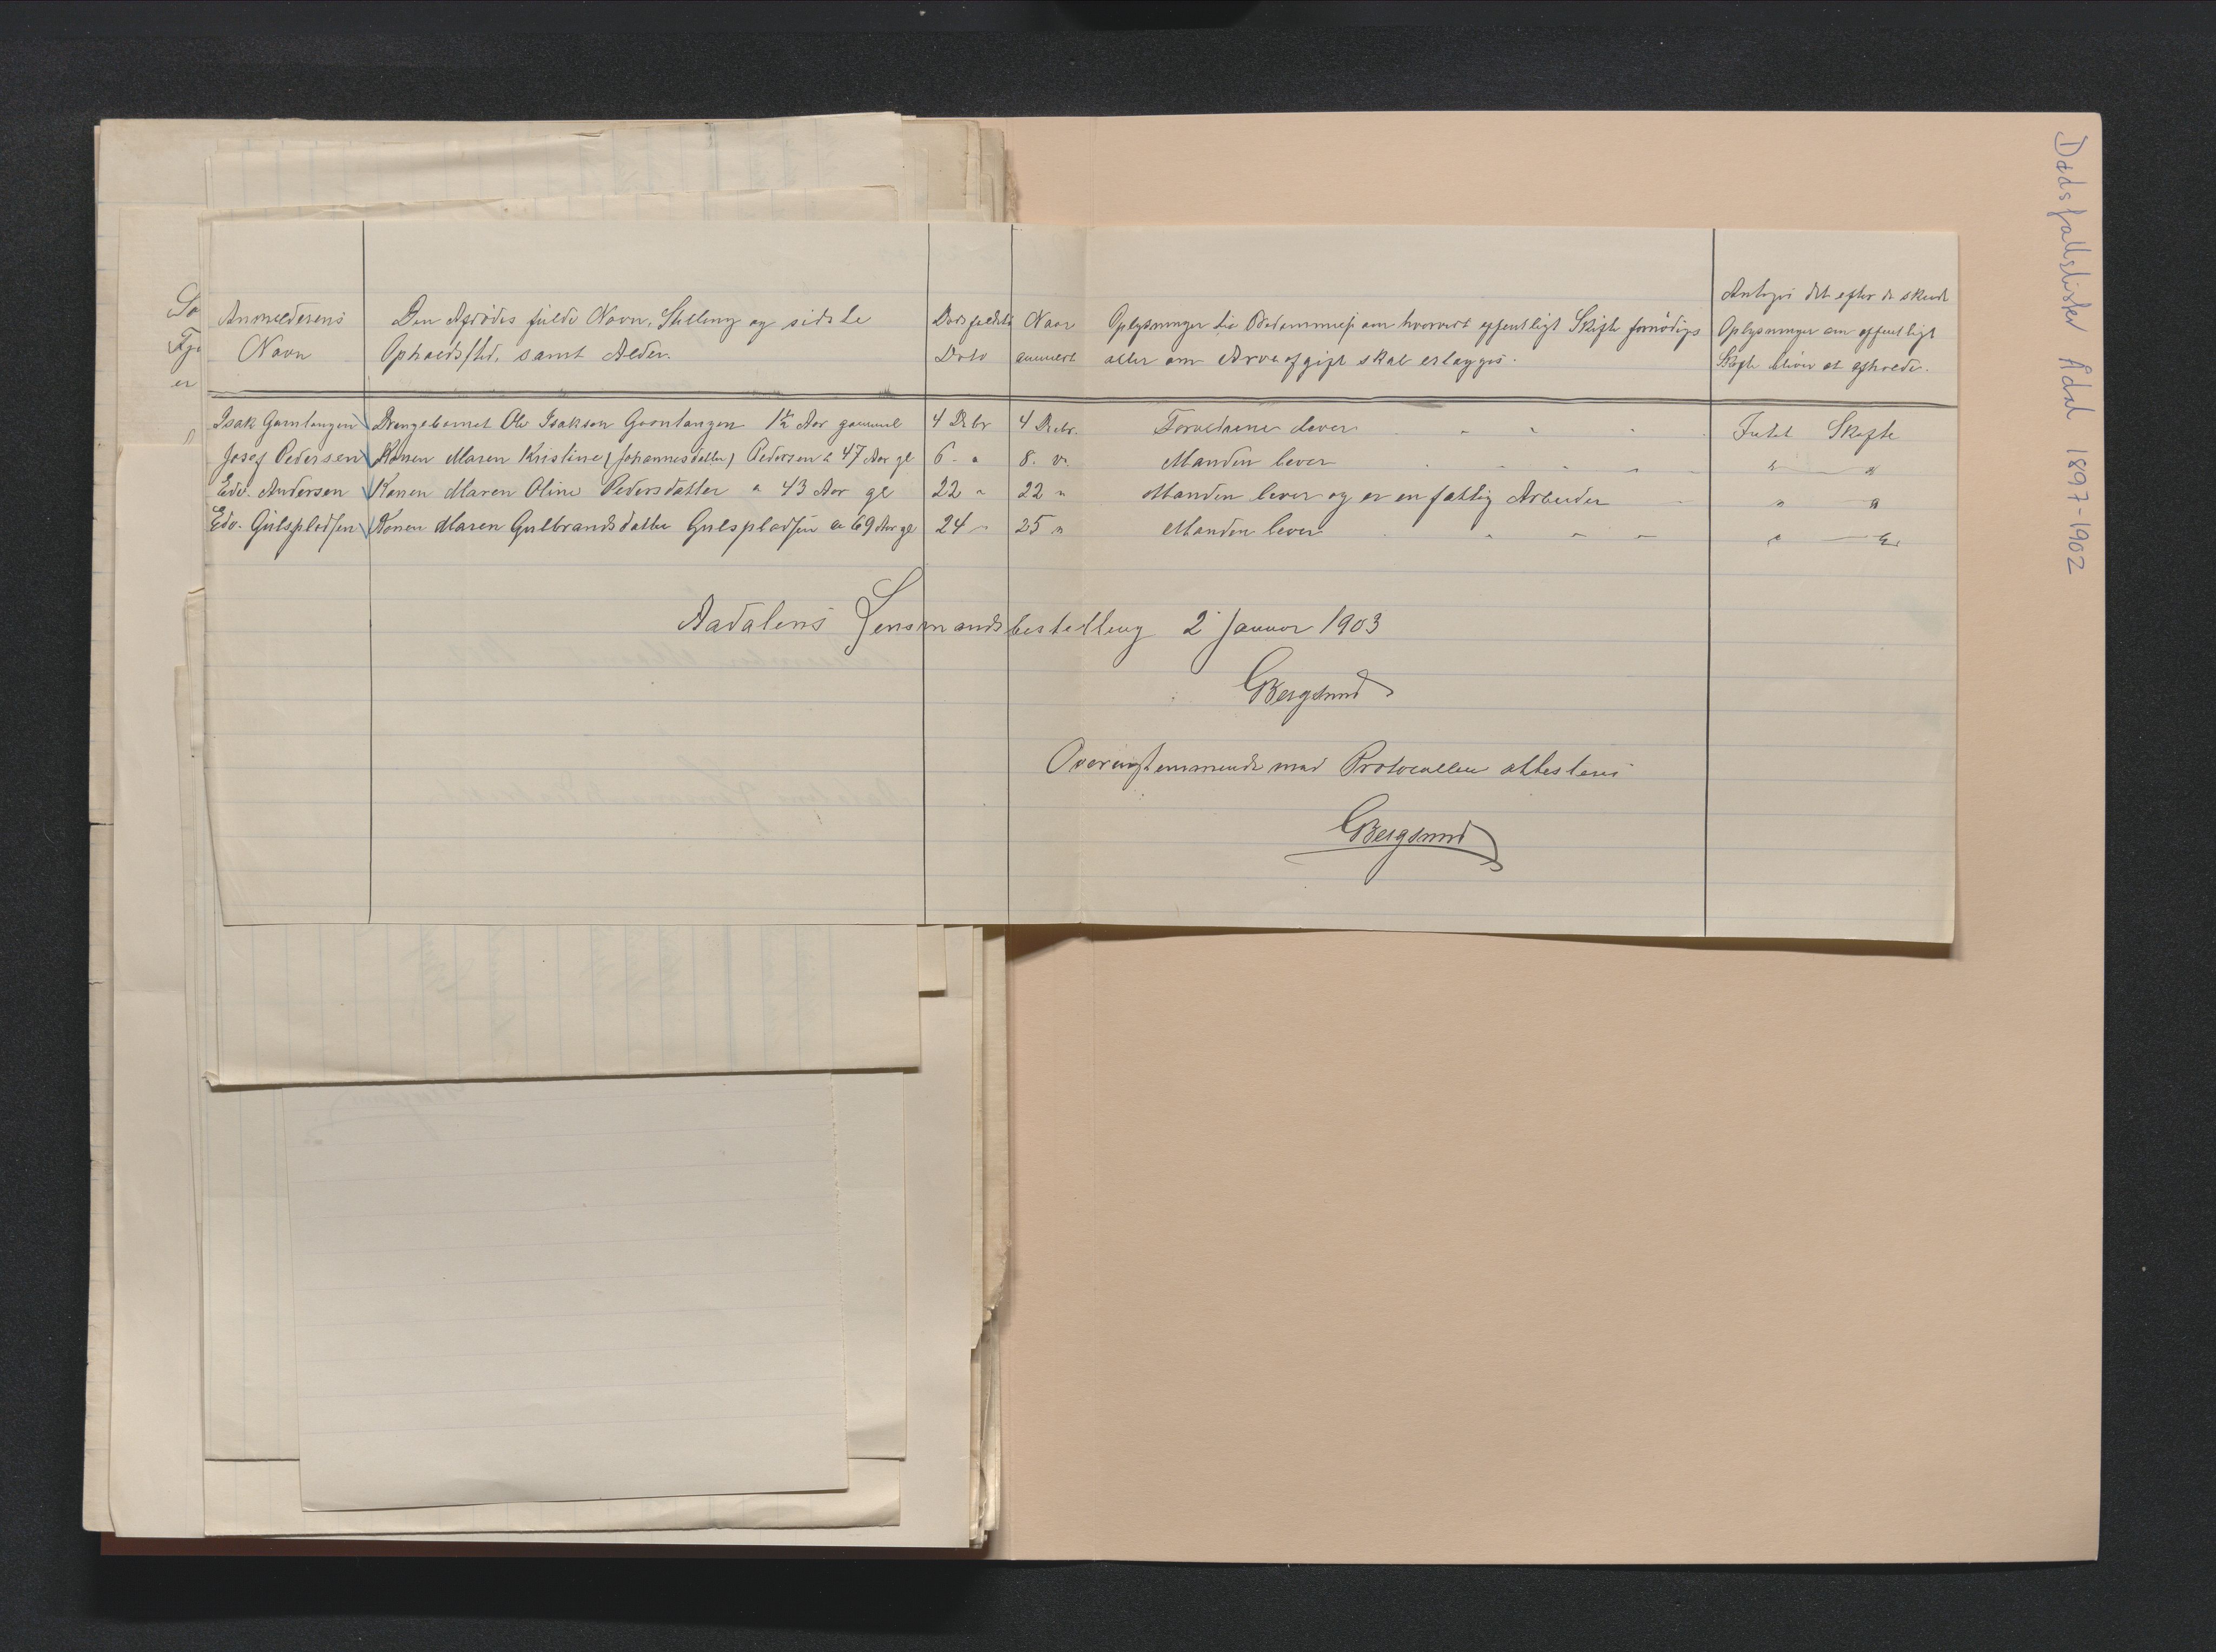 Dødsfallslister Ådal 1897-1902
Anmelderens Navn
Den Afdödes fulde Navn, Stilling og sidste
Opholdssted, samt Alder.
Dödsfaldets Dato
Naar anmeldt
Oplysninger til Bedømmelse om hvorvidt offentligt Skifte fornödiges
eller om Arveafgift skal erlægges.
Antages det efter de skeede
Oplysninger om offentligt
Skifte bliver at afholde.
Isak Gamlangen Drengebarnet Ole Isaksen 1½ Aar gammel 4 Decbr 4 Decbr. Forældrene lever. Intet Skifte
Josef Pedersen Konen Maren Kristine (Johannesdatter) Pedersen 47 Aar gl 6 " 8 " Manden lever " "
Edv. Andersen Konen Maren Oline Pedersdatter " 43 Aar gl 22 " 22 " Manden lever og er en fattig Arbeider " "
Edv. Gulspladsen Konen Maren Gulbrandsdatter Gulspladsen 69 Aar gl 24 " 25 " Manden lever " "
Aadalens Lensmandsbestilling 2 Januar 1903
GBergsund
Overensstemmende med Protocollen attesteres
GBergsund